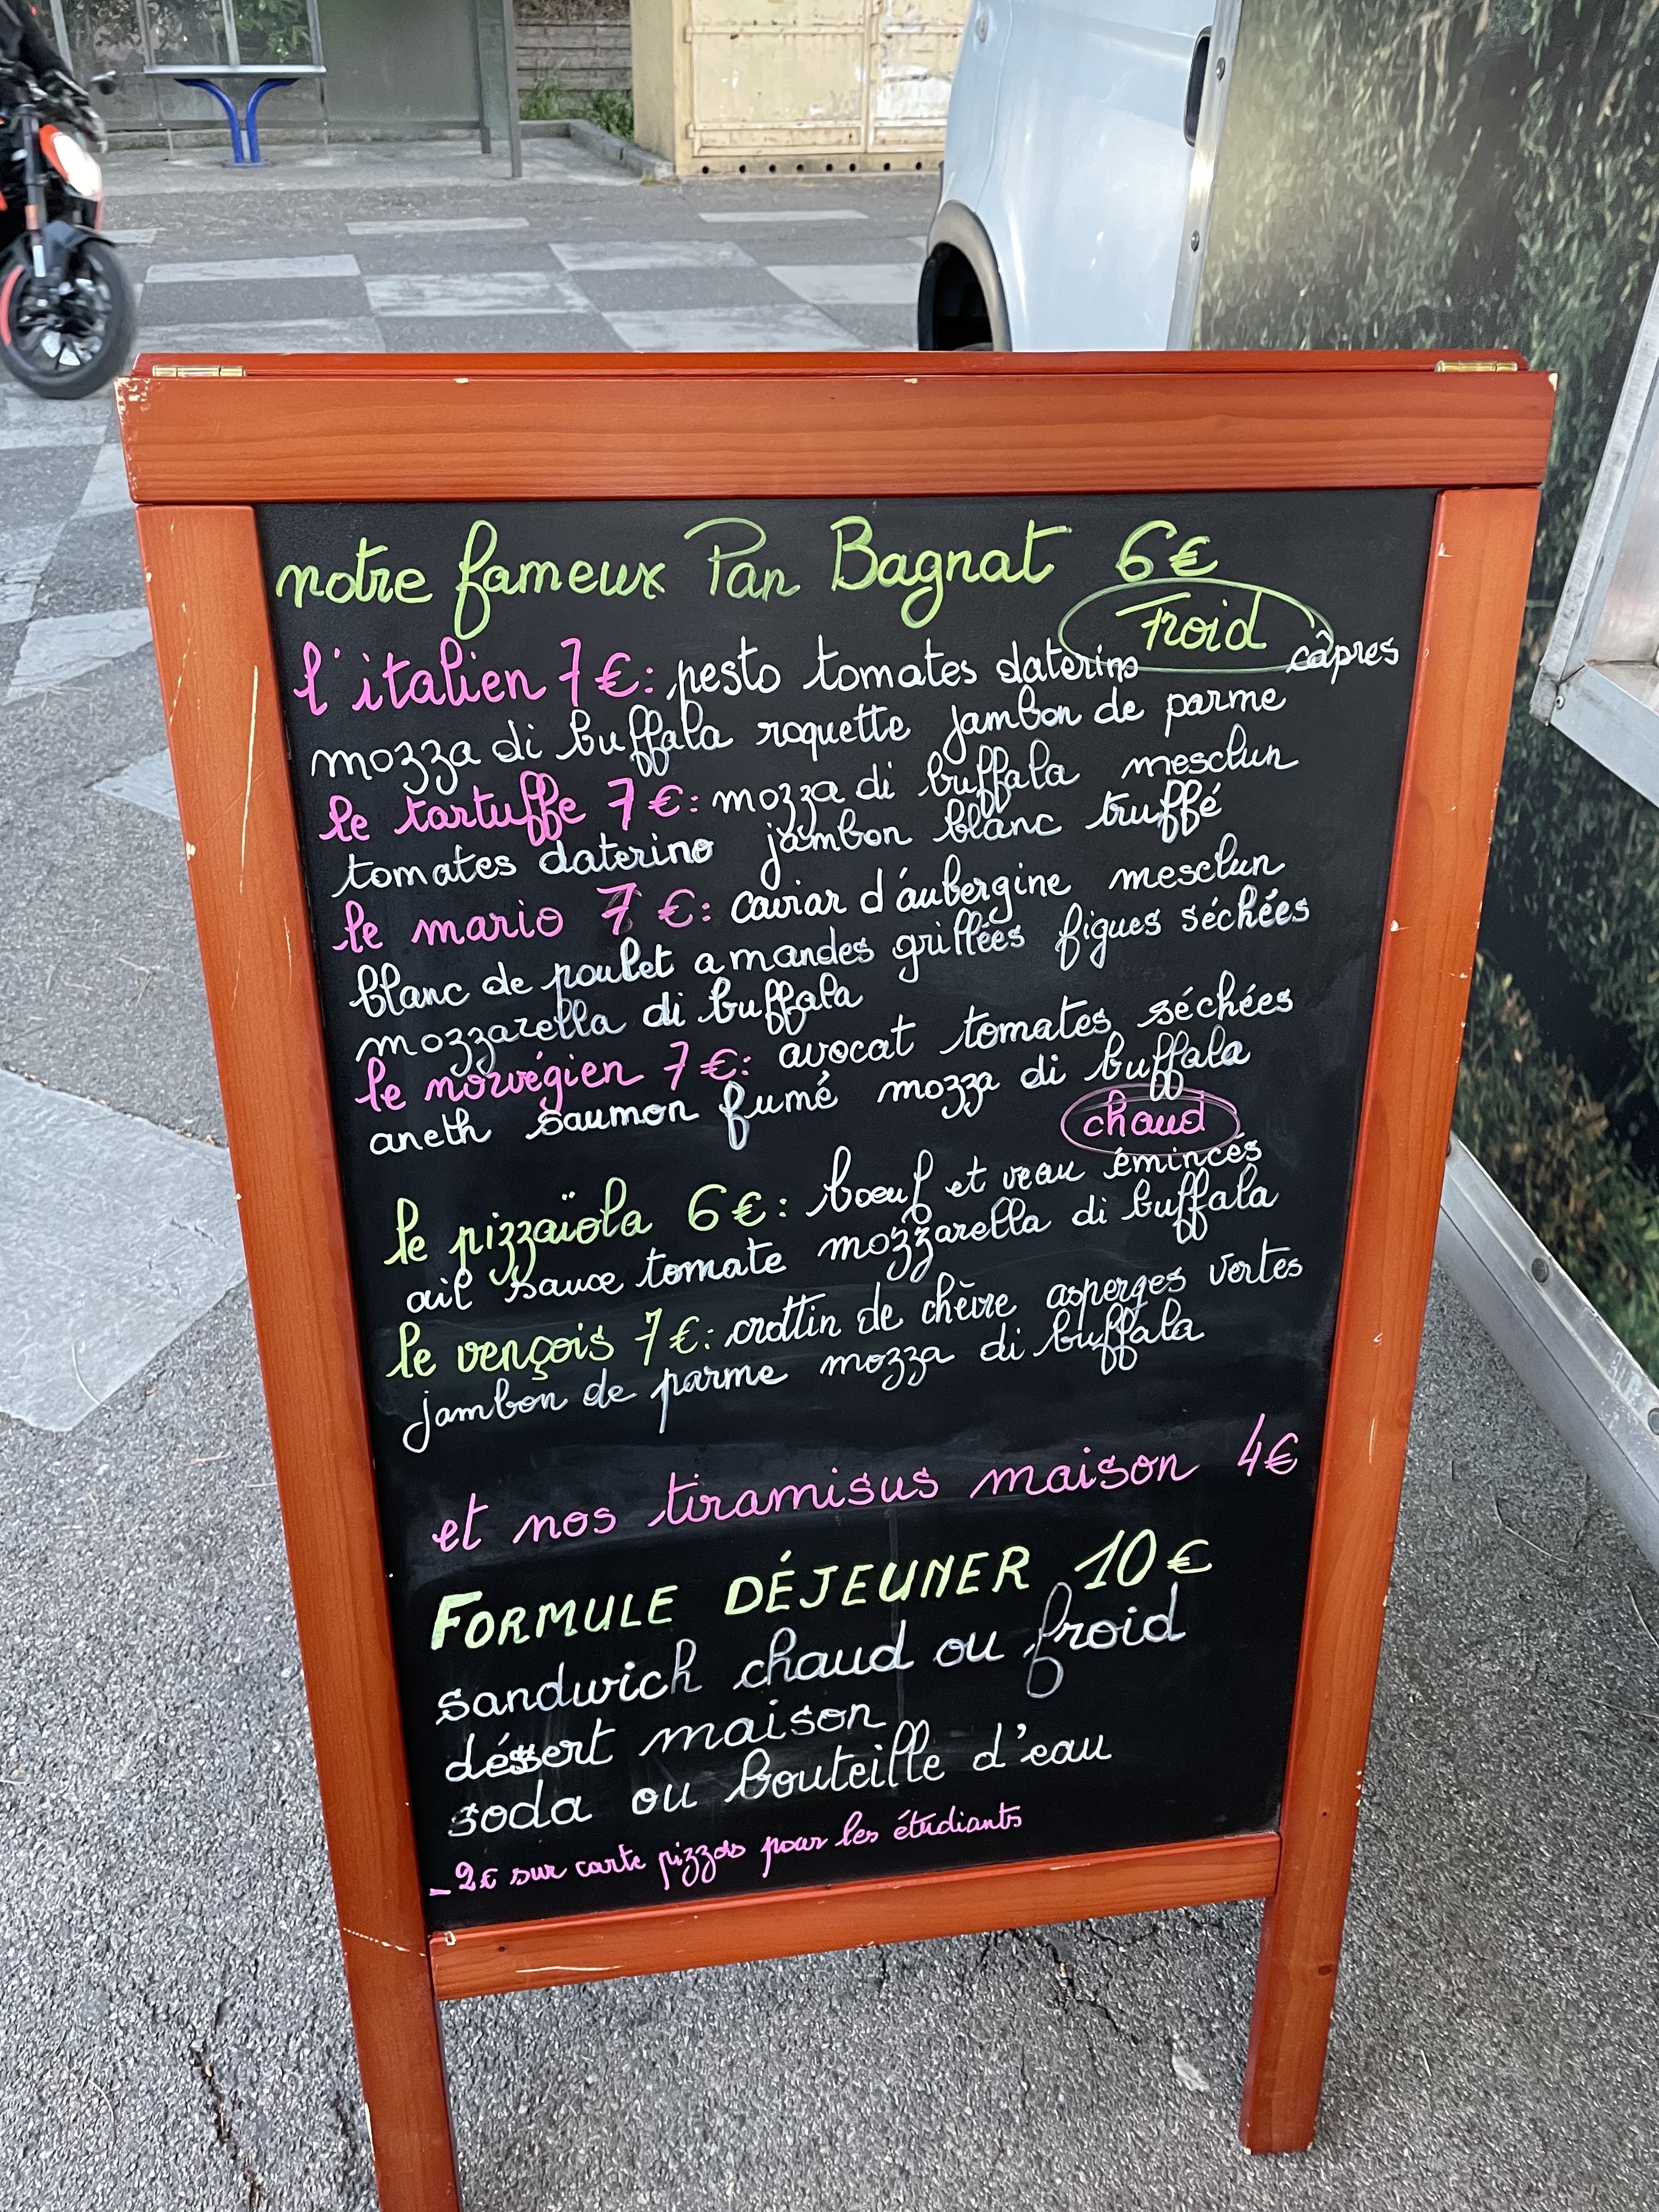 notre fameux Pan Bagnat 6€
Froid
l'italien 7€: pesto tomates daterino câpres
mozza di buffala roquette jambon de parme
le tartuffe 7€: mozza di buffala mesclun
tomates daterino jambon blanc truffé
le mario 7€: caviar d'áubergine mesclun
blanc de poulet amandes grillées figues séchées
mozzarella di buffala
le norvégien 7€: avocat tomates séchées
aneth saumon fumé mozza di buffala
chaud
le pizzaïola 6€: boeuf et veau émincés
ail sauce tomate mozzarella di buffala
le vençois 7€: crottin de chèvre asperges vertes
jambon de parme mozza di buffala
et nos tiramisus maison 4€
FORMULE DÉJEUNER 10€
sandwich chaud ou froid
déssert maison
soda ou bouteille d'eau
-2€ sur carte pizzas pour les étudiants